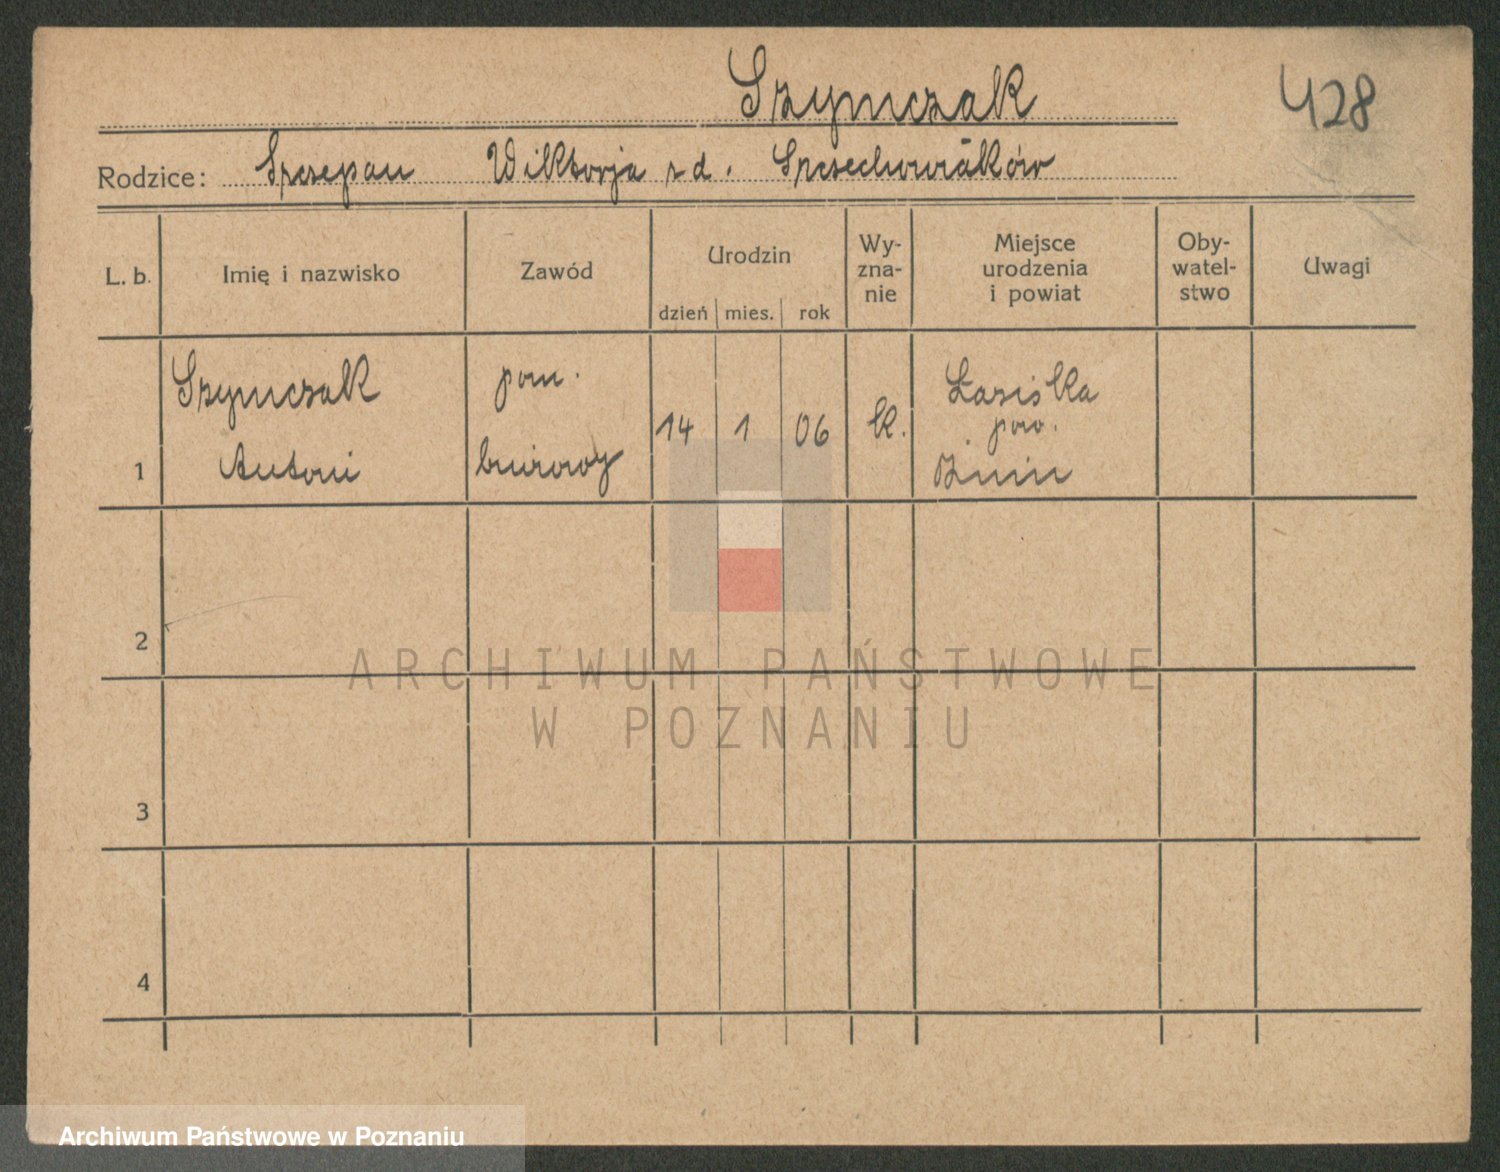 Szymczak 428
Rodzice: Szczepan Wiktorja z d. Szczechowiaków
L. b. Imię i nazwisko Zawód Urodzin dzień mies. rok Wy-zna-nie Miejsce urodzenia i powiat Oby-watel-stwo Uwagi
Szymczak pom. Łaziska
14 1 06 k. pow.
1 Antoni biurowy Żnin
2
ARCHIWUM PAŃSTWOWE
W POZNANIU
3
4
Archiwum Państwowe w Poznaniu